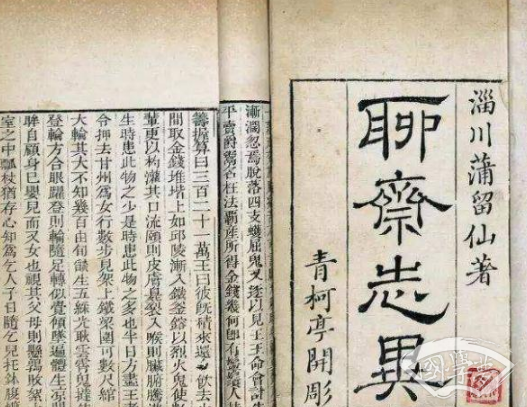 淄川蒲留仙著
聊齋志異
青柯亭開彫
漸濶忽焉脫落四支蠖屈鬼又逐以見王王命會計生
平賣爵鬻名枉法覇產所得金錢幾何即有鬡鬚人持
籌握算曰三百二十一萬王曰彼旣積來還
飲去
間取金錢堆堦上如邱陵漸入鐵釜鎔以烈火鬼使數
輩更以杓灌其口流頤則皮膚臭裂入喉則臟腑騰
生時患此物之少是時患此物之多也半日方盡王者
令押去甘州為女行數步見架上鐵梁圍可數尺綰
大輪其大不知幾百由旬燄生五綵光耿雲霄鬼撻
登輪方合眼躍登則輪隨足轉似覺傾墜遍體生凉
眸自顧身已嬰兒而又女也視其父母則懸鶉敗絮
室之中瓢杖猶存心知為乞人子日隨乞兒托鉢腹
國學